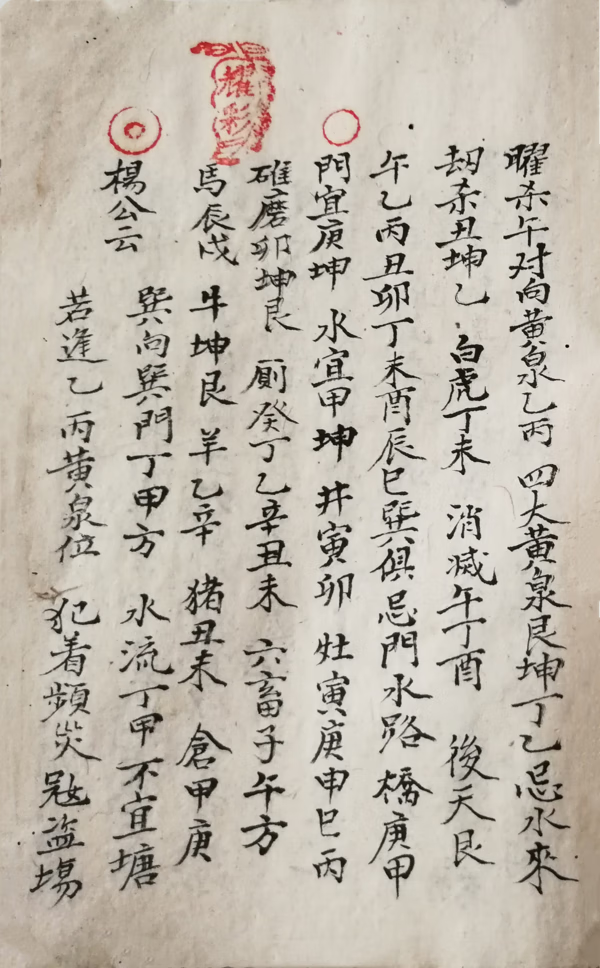 曜杀午对向黄泉乙丙 四大黄泉艮坤丁乙忌水來
劫杀丑坤乙 白虎丁未 消滅午丁酉 後天艮
午乙丙丑卯丁未酉辰巳巽俱忌門水路 橋庚甲
門宜庚坤 水宜甲坤 井寅卯 灶寅庚申巳丙
碓磨卯坤艮 厠癸丁乙辛丑未 六畜子午方
馬辰戌 牛坤艮 羊乙辛 猪丑未 倉甲庚
楊公云 巽向巽門丁甲方 水流丁甲不宜塘
若逢乙丙黄泉位 犯着頻災冦盗塲
耀彩